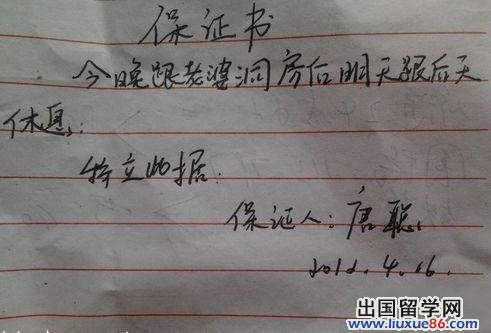 保证书
今晚跟老婆洞房后明天跟后天
休息,:
特立此据.
保证人:唐聪,
2012.4.16.
出国留学网
www.liuxue86.com